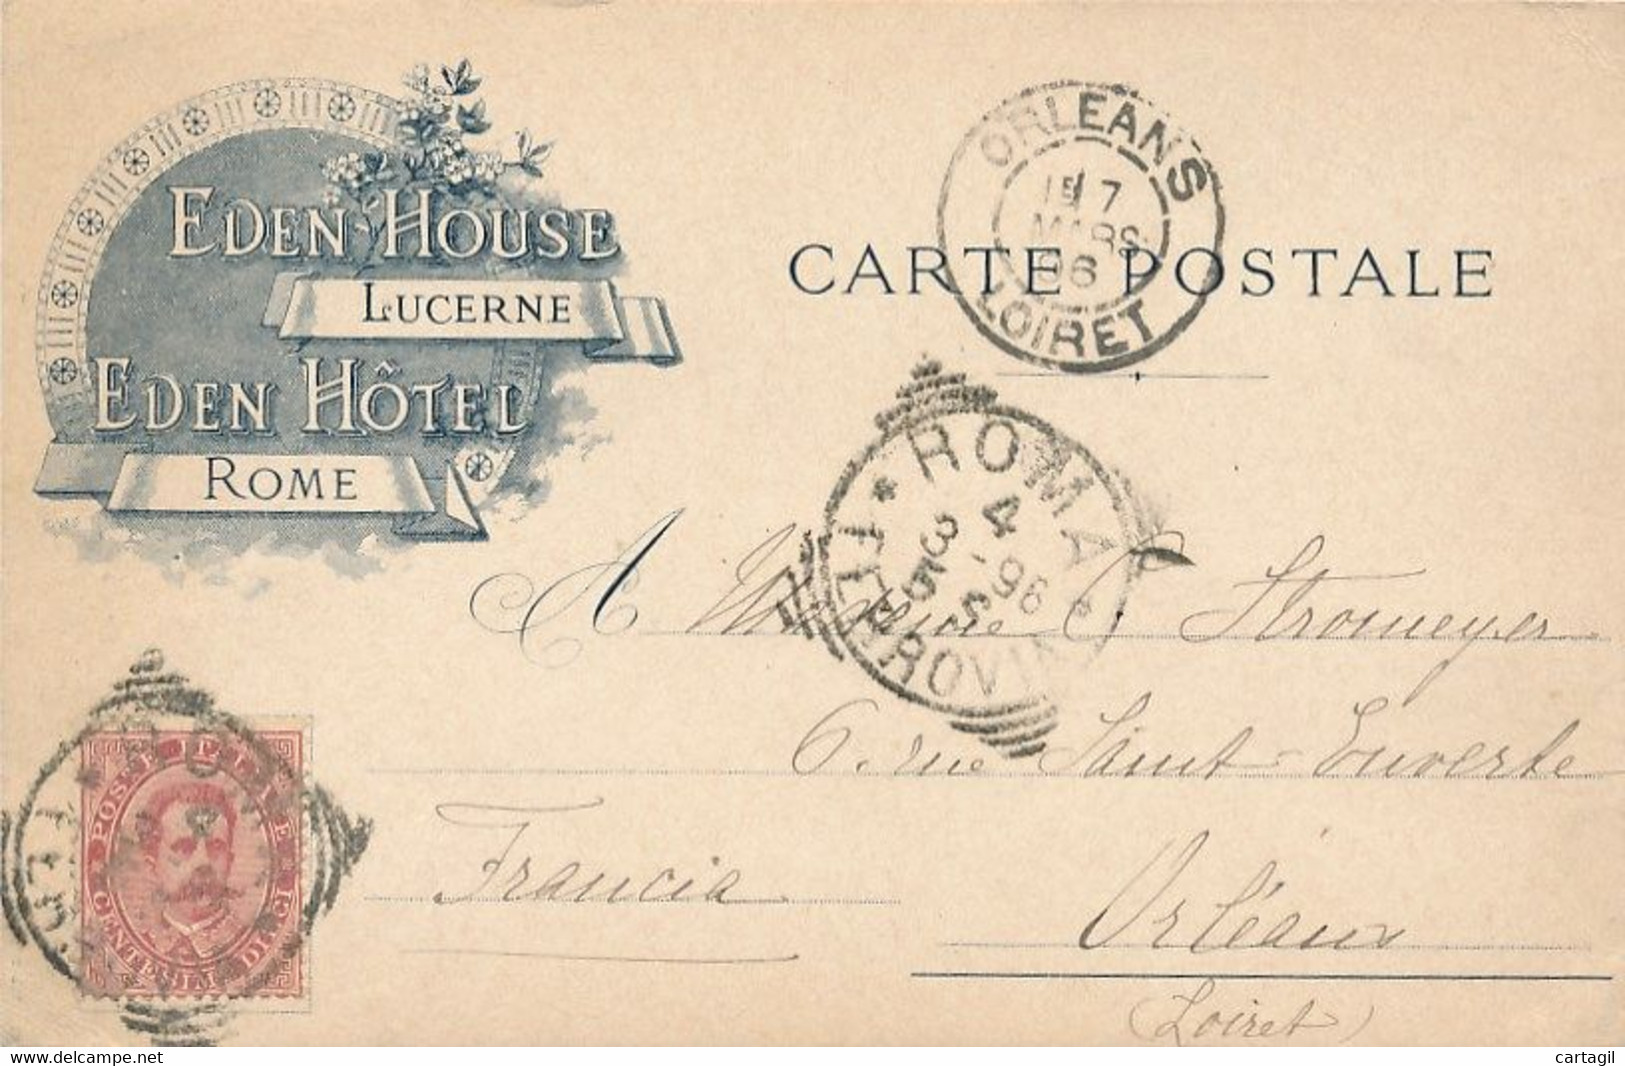 EDEN HOUSE
LUCERNE
EDEN HÔTEL
ROME
ORLEANS
7
MARS
96
LOIRET
CARTE POSTALE
* ROMA *
4
3-96
5 S
FERROVIA
A Madame C Stromeyer
6. rue Saint-Euverte
Francia
Orléans
(Loiret)
POSTE ITALIANE
CENTESIMI DIECI
cartagil